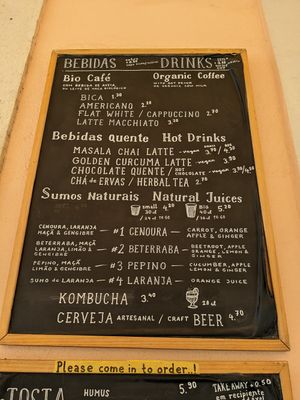 BEBIDAS DRINKS
Bio Café Organic Coffee
COM BEBIDA DE AVEIA WITH OAT DRINK
OU LEITE DE VACA BIOLÓGICO OR ORGANIC COW MILK
BICA 1.30
AMERICANO 2.20
FLAT WHITE / CAPPUCCINO 2.80
LATTE MACCHIATO 3.20
Bebidas Quente Hot Drinks
MASALA CHAI LATTE - vegan 3.90/4.50
GOLDEN CURCUMA LATTE - vegan 3.90
CHOCOLATE QUENTE / HOT CHOCOLATE - vegan 3.90/4.50
CHÁ de ERVAS / HERBAL TEA 2.70
Sumos Naturais Natural Juices
small 30cl 4.20 BIG 40cl 5.20
CENOURA, LARANJA MAÇÃ & GENGIBRE — #1 CENOURA — CARROT, ORANGE APPLE & GINGER
BETERRABA, MAÇÃ LARANJA, LIMÃO & GENGIBRE — #2 BETERRABA — BEETROOT, APPLE ORANGE, LEMON & GINGER
PEPINO, MAÇÃ LIMÃO & GENGIBRE — #3 PEPINO — CUCUMBER, APPLE LEMON & GINGER
SUMO de LARANJA — #4 LARANJA — ORANGE JUICE
KOMBUCHA 3.40
CERVEJA ARTESANAL / CRAFT BEER 4.70
Please come in to order..!
TOSTA HUMUS 5.90 TAKE AWAY +0.50
em recipiente